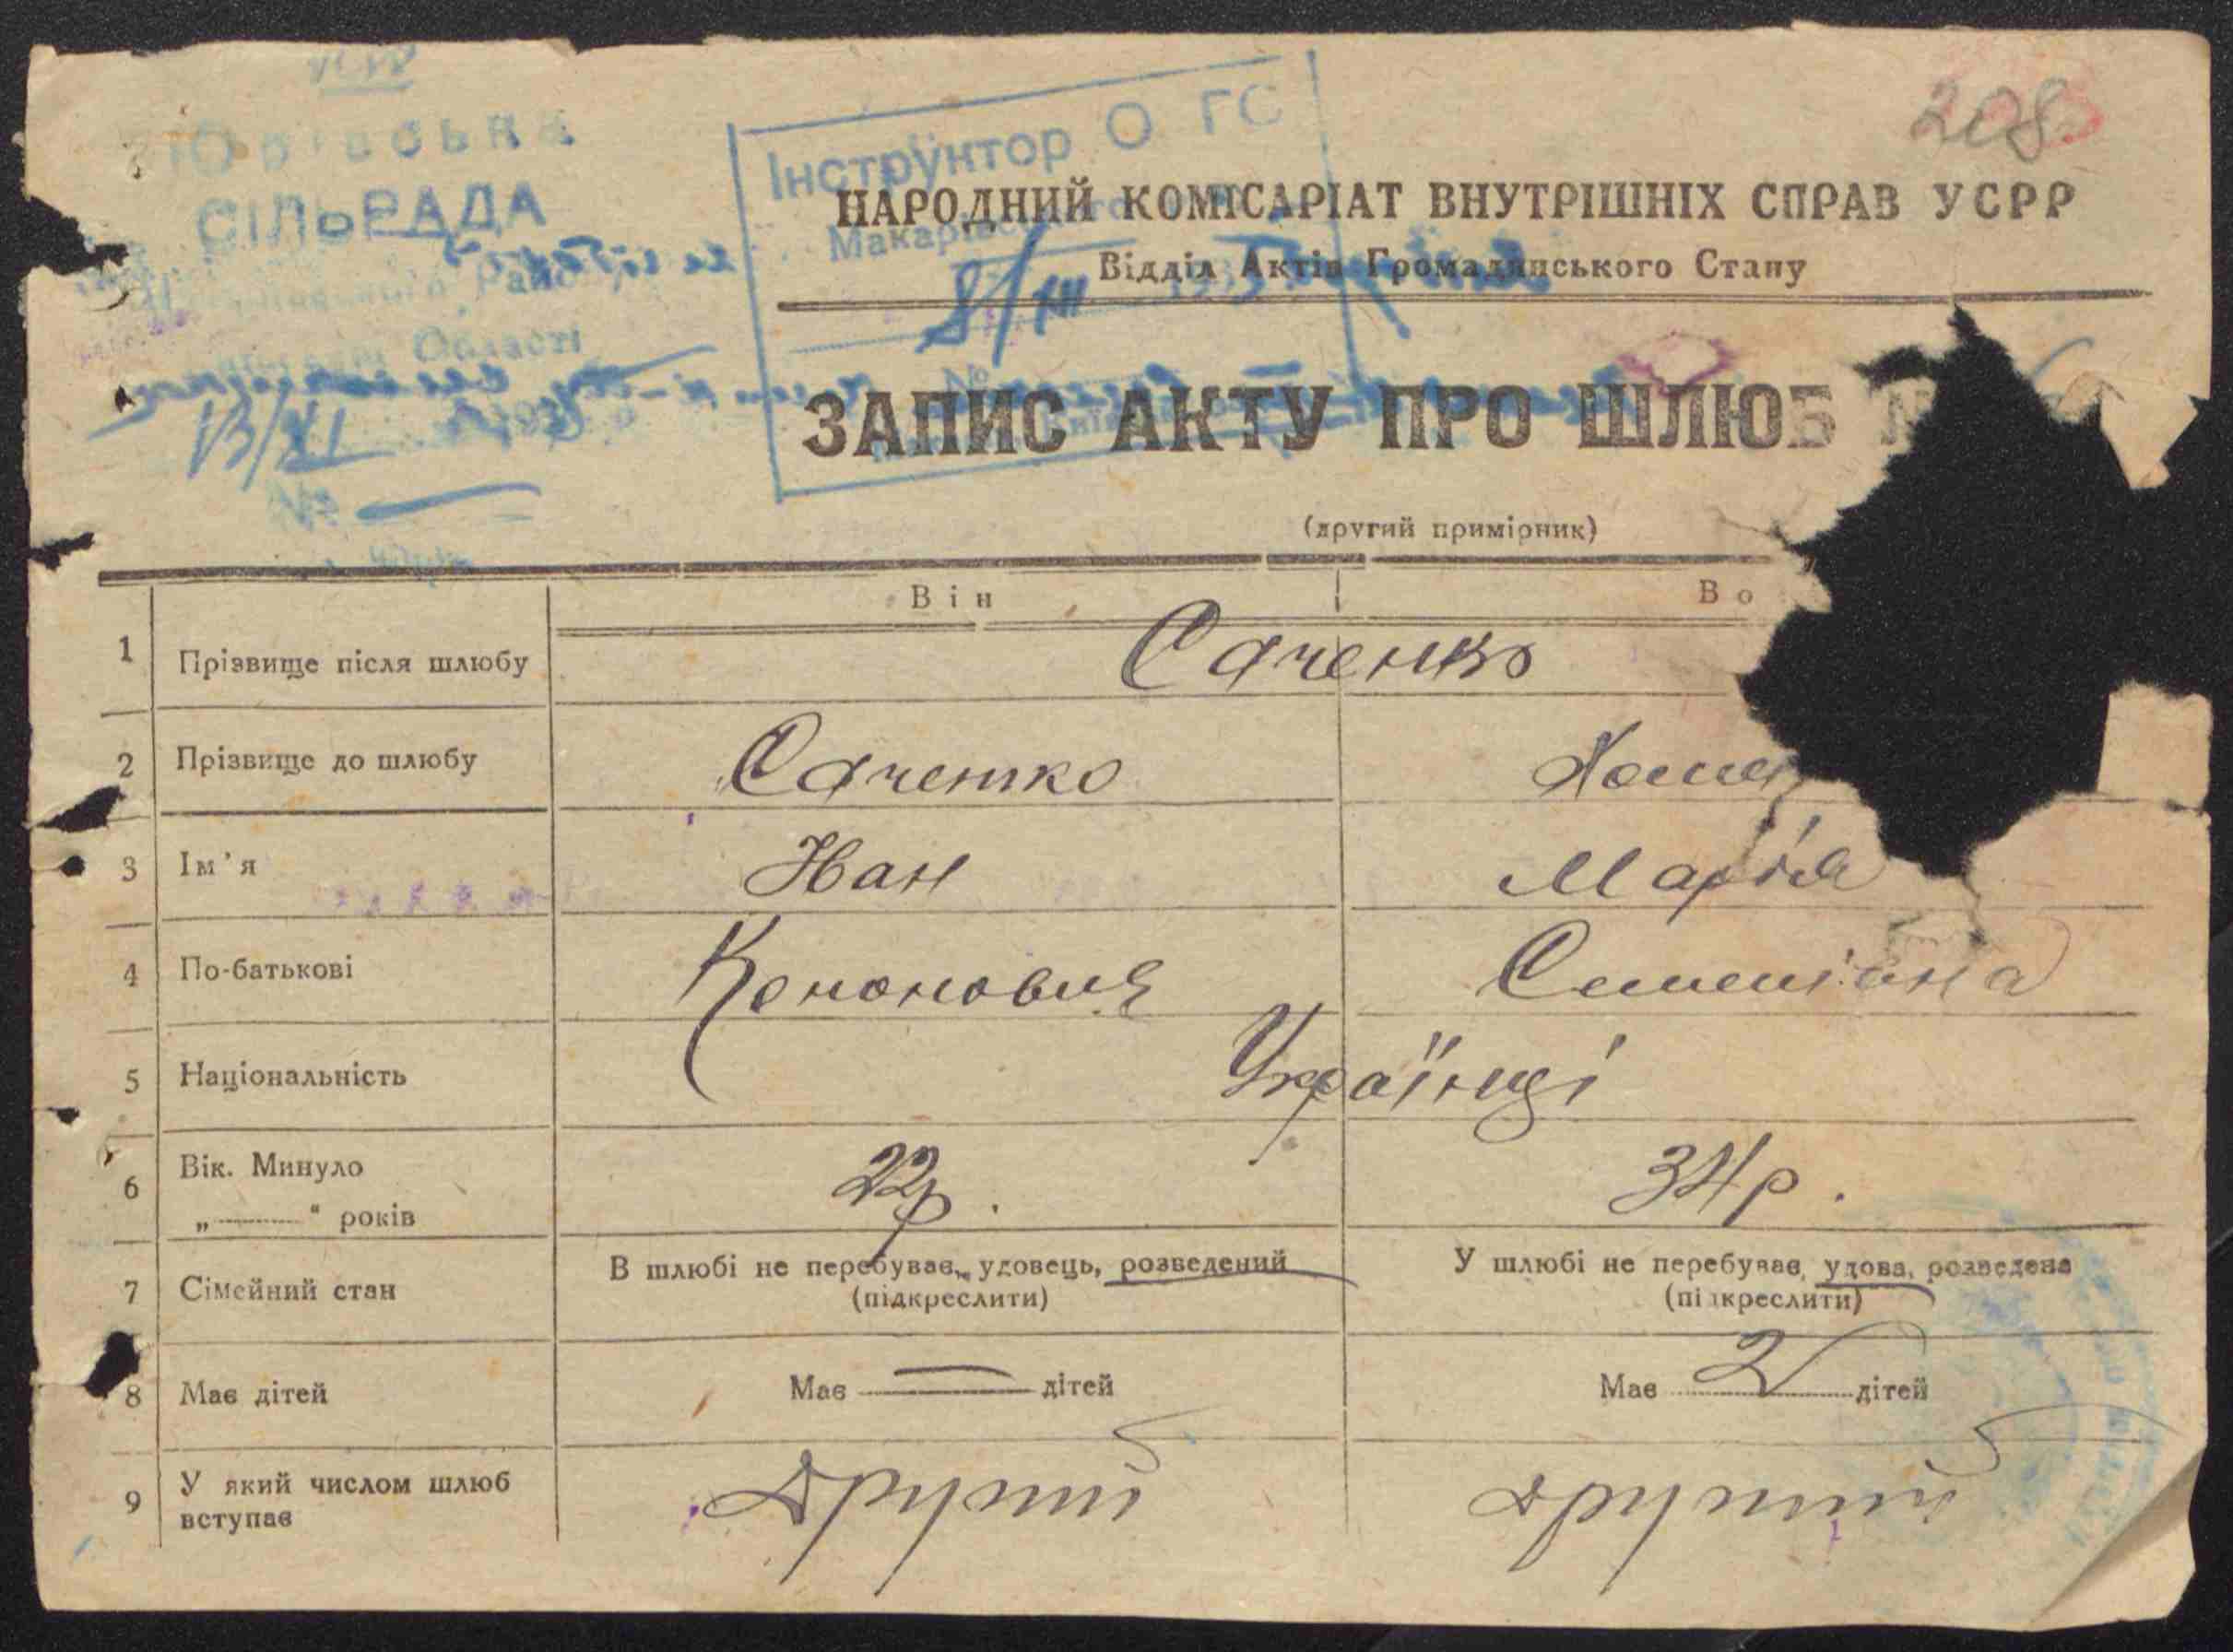 208
Юрівська
СІЛЬРАДА
Області
13/XI
№
Інструктор О ГС
8/XII
НАРОДНИЙ КОМІСАРІАТ ВНУТРІШНІХ СПРАВ УСРР
Відділ Актів Громадянського Стану
ЗАПИС АКТУ ПРО ШЛЮБ
(другий примірник)
Він Во
1 Прізвище після шлюбу Саченко
2 Прізвище до шлюбу Саченко
3 Ім'я Іван Марія
4 По-батькові Кононович Семенівна
5 Національність Українці
6 Вік. Минуло 22р. 34р.
„ — “ років
7 Сімейний стан В шлюбі не перебуває, удовець, розведений У шлюбі не перебуває, удова, розведена
(підкреслити) (підкреслити)
8 Має дітей Має — дітей Має 2 дітей
9 У який числом шлюб вступає другий другий